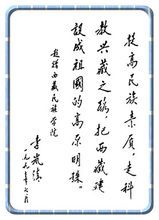 提高民族素质，走科
教兴藏之路，把西藏建
设成祖国的高原明珠。
赵赠西藏民族学院
李岚清
一九九七年七月